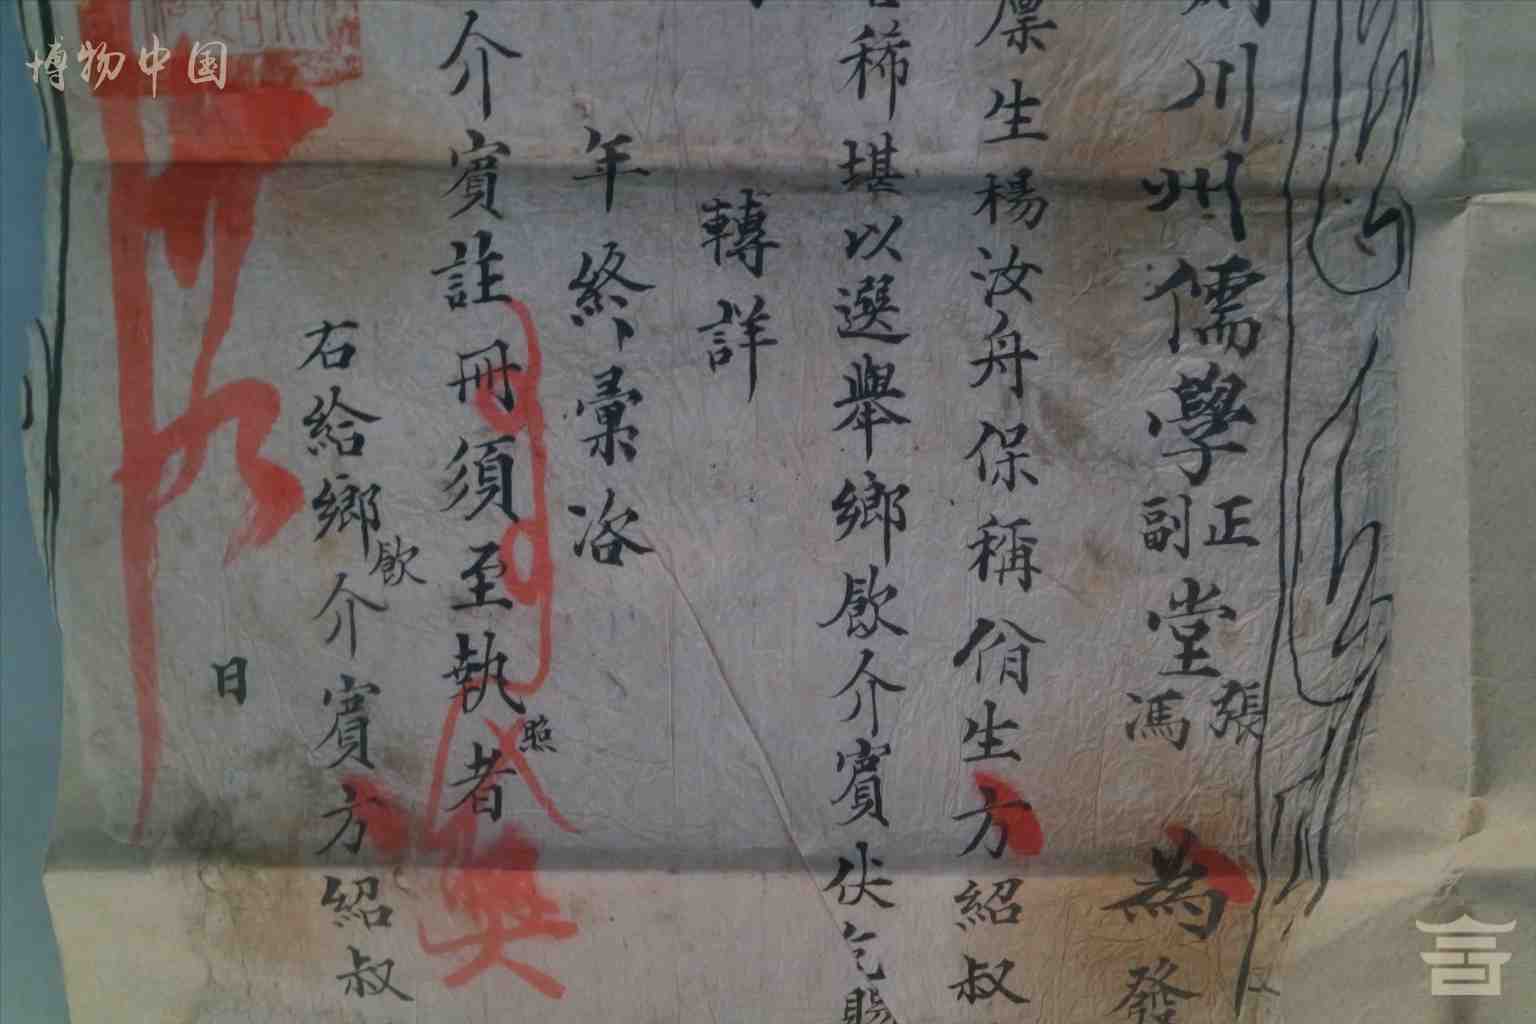 川州儒學正副堂張馮為發
廩生楊汝舟保稱佾生方紹叔
稀堪以選舉鄉飲介賓伏乞賜
轉詳
年終彙咨
介賓註冊須至執照者
右給鄉飲介賓方紹叔
日
博物中国